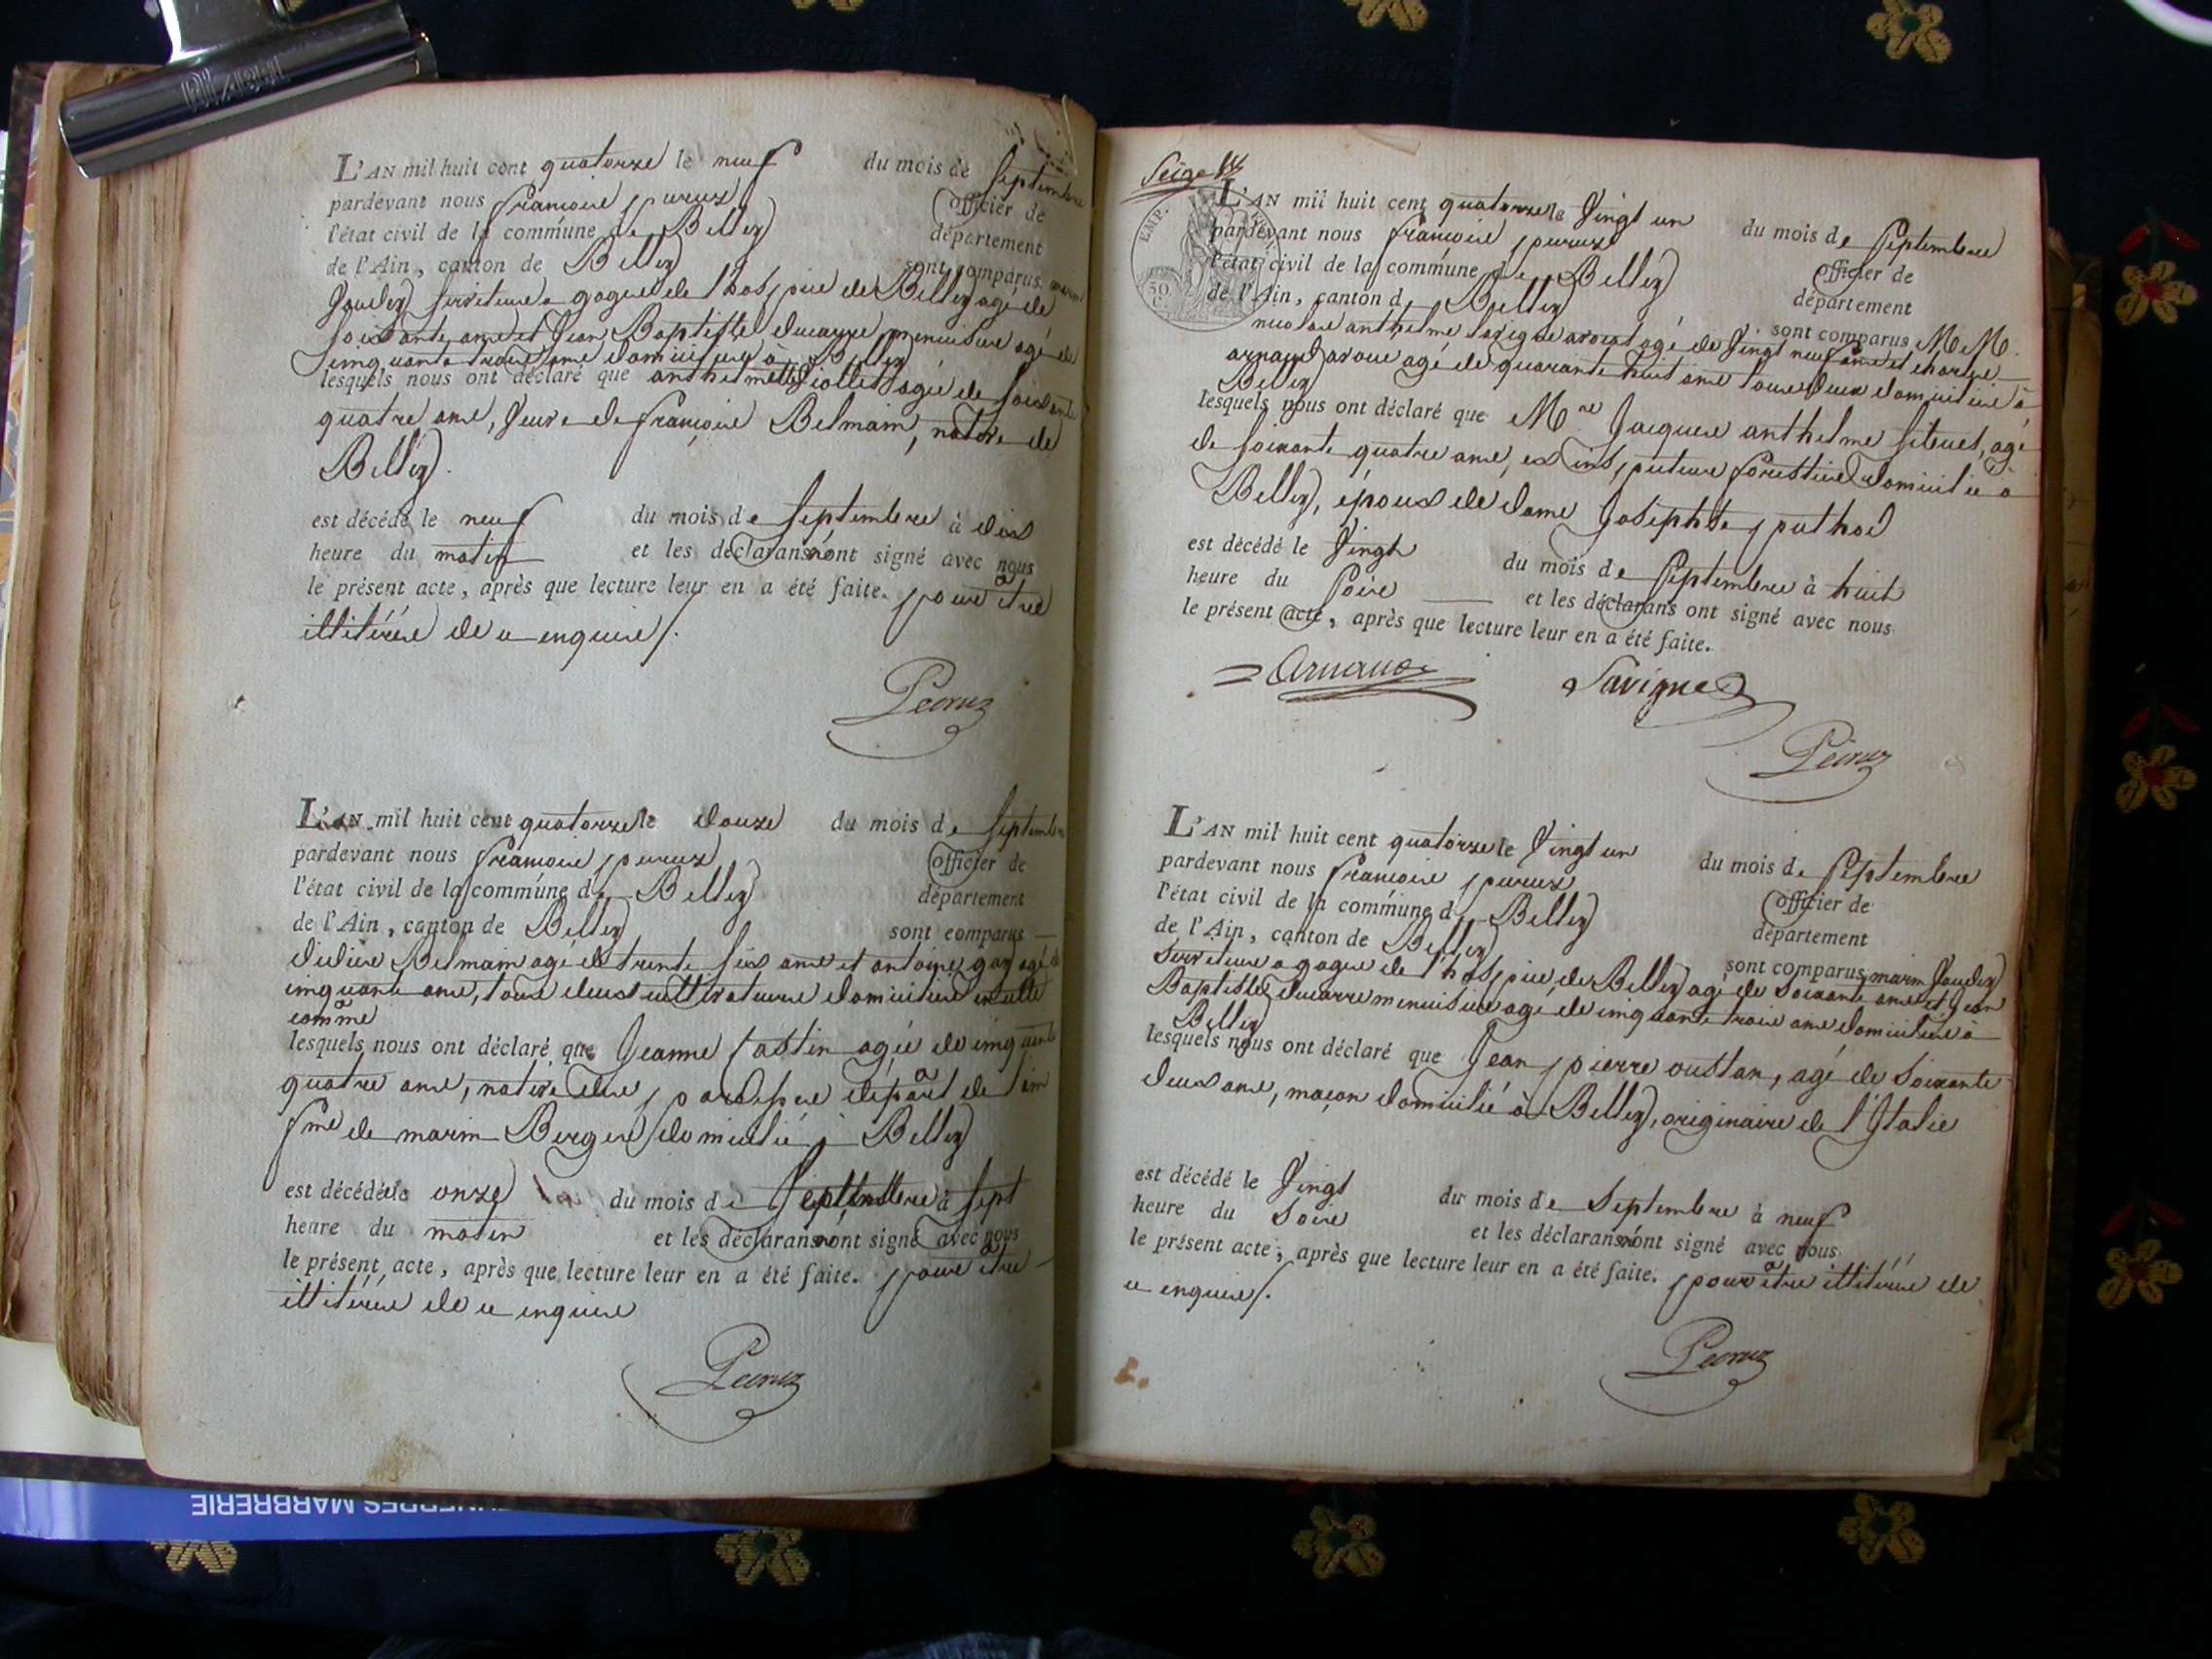 L'AN mil huit cent quatorze le neuf du mois de Septembre
pardevant nous françois peruz officier de
l'état civil de la commune de Belley département
de l'Ain, canton de Belley sont comparus marin
serviteur a gage de l'hospice de Belley agé de
soixante ans et Jean Baptiste ducarre menuisier agé de
cinquante trois ans domiciliés à Belley
lesquels nous ont déclaré que anthelmette agée de soixante
quatre ans, veuve de françois Belmain, native de
Belley.
est décédé le neuf du mois de Septembre à dix
heure du matin et les déclarans n'ont signé avec nous
le présent acte, après que lecture leur en a été faite. pour être
illitérés de ce enquis /.
Peruz
L'AN mil huit cent quatorze le douze du mois de Septembre
pardevant nous françois peruz officier de
l'état civil de la commune de Belley département
de l'Ain, canton de Belley sont comparus
didier Belmain agé de trente six ans et antoine gay agé de
cinquante ans, tous deux cultivateurs domiciliés en cette
comme
lesquels nous ont déclaré que Jeanne agée de cinquante
quatre ans, native de départ de l'ain
fme de marin Berger domicilié à Belley
est décédée le onze du mois de Septembre à sept
heure du matin et les déclarans n'ont signé avec nous
le présent acte, après que lecture leur en a été faite. pour être
illitérés de ce enquis
Peruz
L'AN mil huit cent quatorze le vingt un du mois de Septembre
EMP.
pardevant nous françois peruz officier de
l'état civil de la commune de Belley département
50 C.
de l'Ain, canton de Belley sont comparus M M.
anthelme savigne avocat agé de vingt neuf ans et charles
arnaud avoué agé de quarante huit ans tous deux domiciliés à
Belley
lesquels nous ont déclaré que Mre Jacques anthelme agé
de soixante quatre ans, ex inspecteur forestier domicilié à
Belley, époux de dame Josephte puthod
est décédé le vingt du mois de Septembre à huit
heure du soir et les déclarans ont signé avec nous
le présent acte, après que lecture leur en a été faite.
Arnaud Savigne
Peruz
L'AN mil huit cent quatorze le vingt un du mois de Septembre
pardevant nous françois peruz officier de
l'état civil de la commune de Belley département
de l'Ain, canton de Belley sont comparus marin
serviteur a gage de l'hospice de Belley agé de soixante ans et Jean
Baptiste ducarre menuisier agé de cinquante trois ans domiciliés à
Belley
lesquels nous ont déclaré que Jean pierre oustan, agé de soixante
deux ans, maçon domicilié à Belley, originaire de l'Italie
est décédé le vingt du mois de Septembre à neuf
heure du soir et les déclarans n'ont signé avec nous
le présent acte, après que lecture leur en a été faite. pour être illitérés de
ce enquis /.
Peruz
MARBRERIE